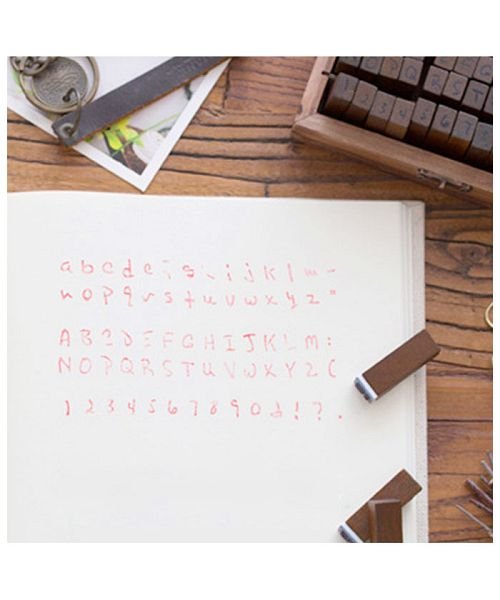 O P Q R
1 2 3 4 5 6 7 8 9
a b c d e f g h i j k l m -
n o p q r s t u v w x y z "
A B C D E F G H I J K L M :
N O P Q R S T U V W X Y Z (
1 2 3 4 5 6 7 8 9 0 & ! ? .